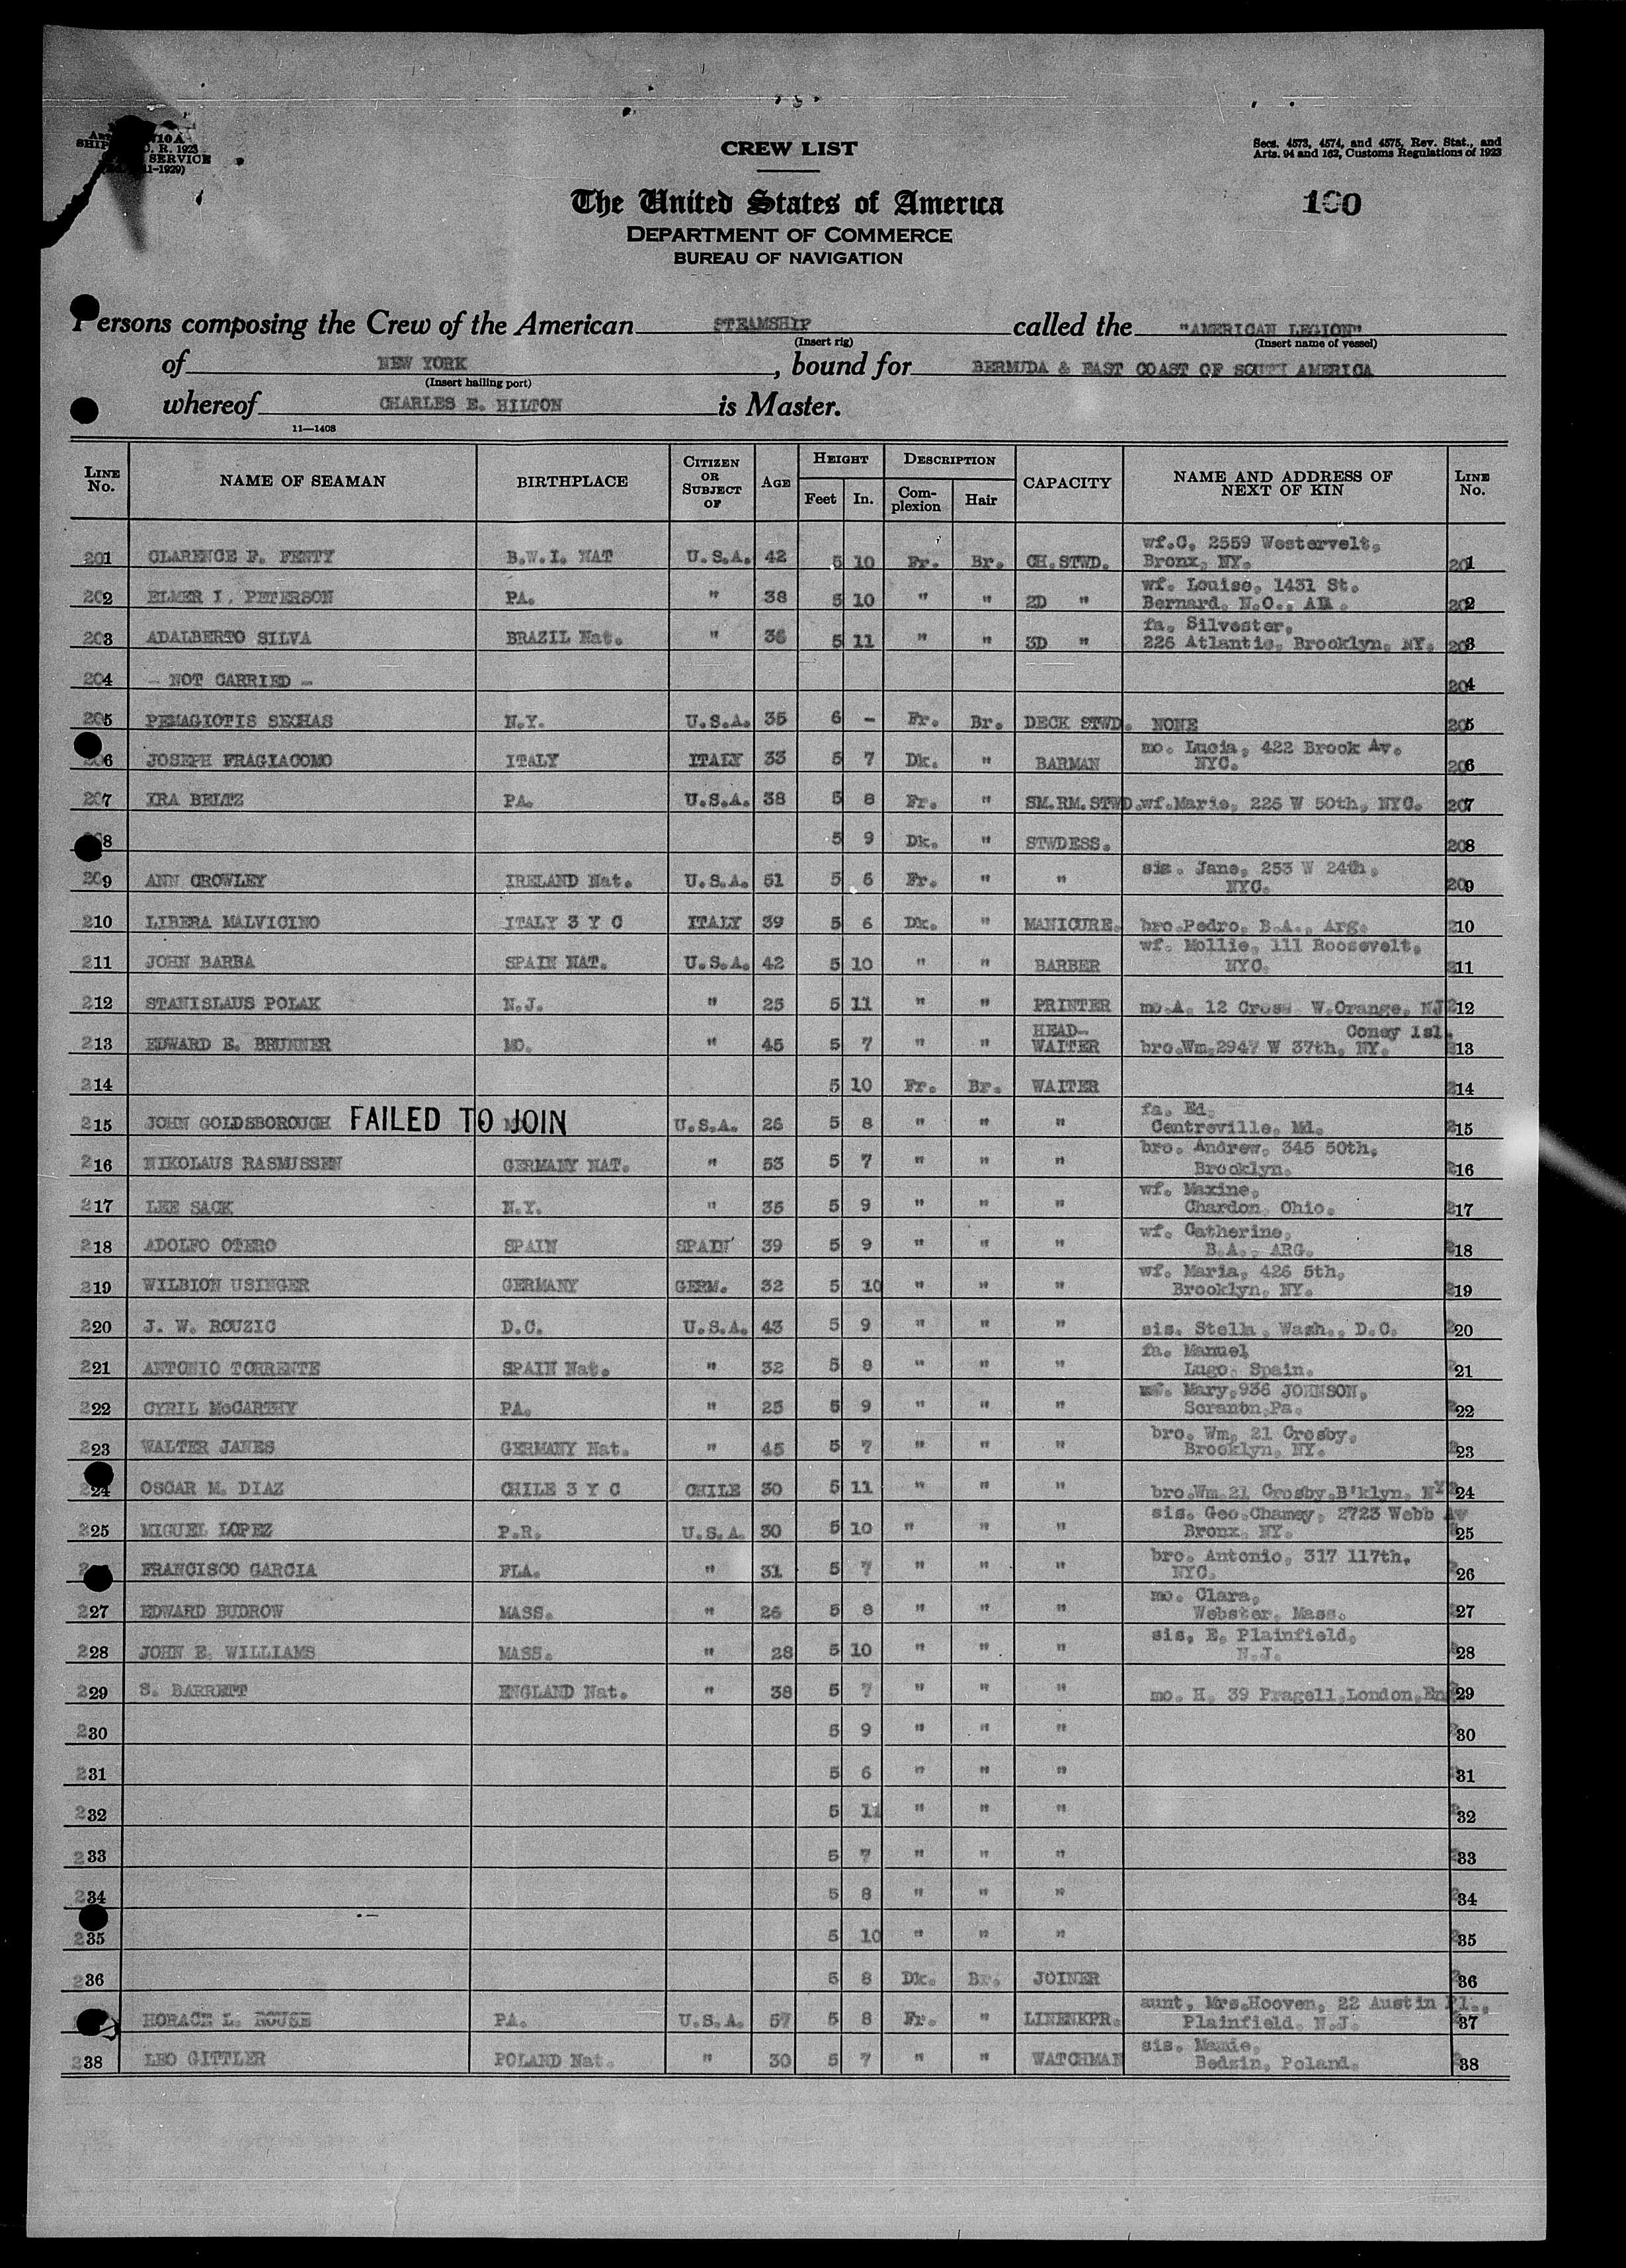 SERVICE
CREW LIST
Secs. 4573, 4574, and 4575, Rev. Stat., and
Arts. 94 and 162, Customs Regulations of 1923
The United States of America
DEPARTMENT OF COMMERCE
BUREAU OF NAVIGATION
Persons composing the Crew of the American STEAMSHIP called the "AMERICAN LEGION"
(Insert rig) (Insert name of vessel)
of NEW YORK, bound for BERMUDA & EAST COAST OF SOUTH AMERICA
(Insert hailing port)
whereof CHARLES E. HILTON is Master.
11—1408
LINE No. NAME OF SEAMAN BIRTHPLACE CITIZEN OR SUBJECT OF AGE HEIGHT Feet In. DESCRIPTION Complexion Hair CAPACITY NAME AND ADDRESS OF NEXT OF KIN LINE No.
201 CLARENCE F. FENTY B.W.I. NAT U.S.A. 42 5 10 Fr. Br. CH. STWD. wf.C, 2559 Westervelt, Bronx, NY. 201
202 ELMER I. PETERSON PA. " 38 5 10 " " 2D " wf. Louise, 1431 St. Bernard, N.O., 202
203 ADALBERTO SILVA BRAZIL Nat. " 36 5 11 " " 3D " fa. Silvester, 226 Atlantic, Brooklyn, NY. 203
204 - NOT CARRIED - 204
205 PEMAGIOTIS SECHAS N.Y. U.S.A. 35 6 - Fr. Br. DECK STWD. NONE 205
206 JOSEPH FRAGIACOMO ITALY ITALY 33 5 7 Dk. " BARMAN mo. Lucia, 422 Brook Av. NYC. 206
207 IRA BELTZ PA. U.S.A. 38 5 8 Fr. " SM.RM.STWD. wf.Marie, 225 W 50th, NYC. 207
8 5 9 Dk. " STWDESS. 208
209 ANN CROWLEY IRELAND Nat. U.S.A. 51 5 6 Fr. " " sis. Jane, 253 W 24th, NYC. 209
210 LIBERA MALVICINO ITALY 3 Y C ITALY 39 5 6 Dk. " MANICURE. bro.Pedro, B.A., Arg. 210
211 JOHN BARBA SPAIN NAT. U.S.A. 42 5 10 " " BARBER wf. Mollie, 111 Roosevelt, NYC. 211
212 STANISLAUS POLAK N.J. " 25 5 11 " " PRINTER mo.A. 12 Cross W.Orange, NJ 212
213 EDWARD E. BRUNNER MO. " 45 5 7 " " HEAD-WAITER bro.Wm,2947 W 37th, NY. Coney Isl. 213
214 5 10 Fr. Br. WAITER 214
215 JOHN GOLDSBOROUGH FAILED TO JOIN U.S.A. 26 5 8 " " " fa. Ed, Centreville, Md. 215
216 NIKOLAUS RASMUSSEN GERMANY NAT. " 53 5 7 " " " bro. Andrew, 345 50th, Brooklyn. 216
217 LEE SACK N.Y. " 35 5 9 " " " wf. Maxine, Chardon, Ohio. 217
218 ADOLFO OTERO SPAIN SPAIN 39 5 9 " " " wf. Catherine, B.A., ARG. 218
219 WILBION USINGER GERMANY GERM. 32 5 10 " " " wf. Maria, 426 5th, Brooklyn, NY. 219
220 J. W. ROUZIC D.C. U.S.A. 43 5 9 " " " sis. Stella, Wash., D.C. 220
221 ANTONIO TORRENTE SPAIN Nat. " 32 5 8 " " " fa. Manuel Lugo, Spain. 221
222 CYRIL McCARTHY PA. " 25 5 9 " " " Mary,936 JOHNSON, Scranton,Pa. 222
223 WALTER JANES GERMANY Nat. " 45 5 7 " " " bro. Wm, 21 Crosby, Brooklyn, NY. 223
224 OSCAR M. DIAZ CHILE 3 Y C CHILE 30 5 11 " " " bro.Wm 21 Crosby,B'klyn, NY 224
225 MIGUEL LOPEZ P.R. U.S.A. 30 5 10 " " " sis. Geo.Chamey, 2723 Webb Av Bronx, NY. 225
2 FRANCISCO GARCIA FLA. " 31 5 7 " " " bro. Antonio, 317 117th, NYC. 226
227 EDWARD BUDROW MASS. " 26 5 8 " " " mo. Clara, Webster, Mass. 227
228 JOHN E. WILLIAMS MASS. " 28 5 10 " " " sis, E, Plainfield, N.J. 228
229 S. BARRETT ENGLAND Nat. " 38 5 7 " " " mo. H, 39 Fragell,London,En 229
230 5 9 " " " 230
231 5 6 " " " 231
232 5 11 " " " 232
233 5 7 " " " 233
234 5 8 " " " 234
235 5 10 " " " 235
236 5 8 Dk. Br. JOINER 236
HORACE L. ROUSE PA. U.S.A. 57 5 8 Fr. " LINENKPR. aunt, Mrs.Hooven, 22 Austin Pl., Plainfield, N.J. 237
238 LEO GITTLER POLAND Nat. " 30 5 7 " " WATCHMAN sis. Mamie, Bedzin, Poland. 238